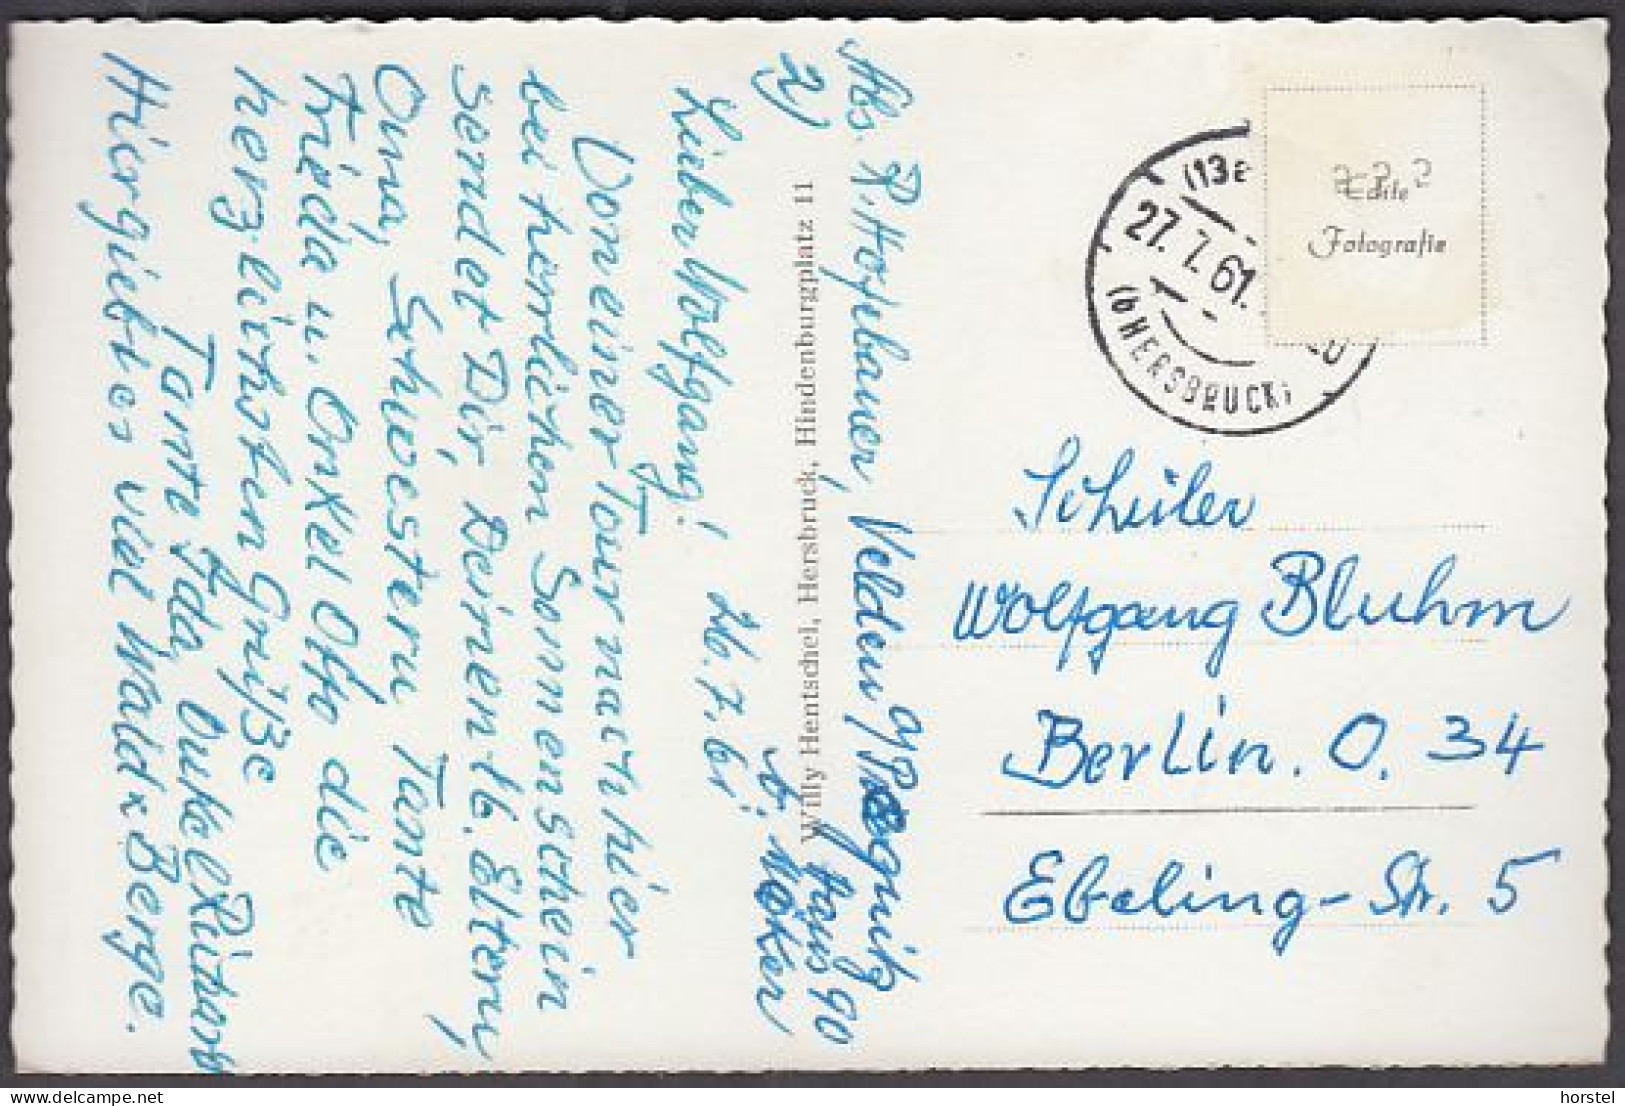 Abs. R. Hofbauer, Velden/Pegnitz
2)
Haus 90
b. Möker
26.7.61
Lieber Wolfgang!
Von einer Tour nach hier
bei herrlichem Sonnenschein
sendet Dir, Deinen lb. Eltern,
Oma, Schwestern, Tante
Frieda u. Onkel Otto die
herzlichsten Grüße
Tante Ida, Onkel Richard
Hier giebt es viel Wald & Berge.
Willy Hentschel, Hersbruck, Hindenburgplatz 11
(13a
27.7.61
HERSBRUCK)
Echte
Fotografie
Schüler
Wolfgang Bluhm
Berlin. O. 34
Ebeling-Str. 5
horstel